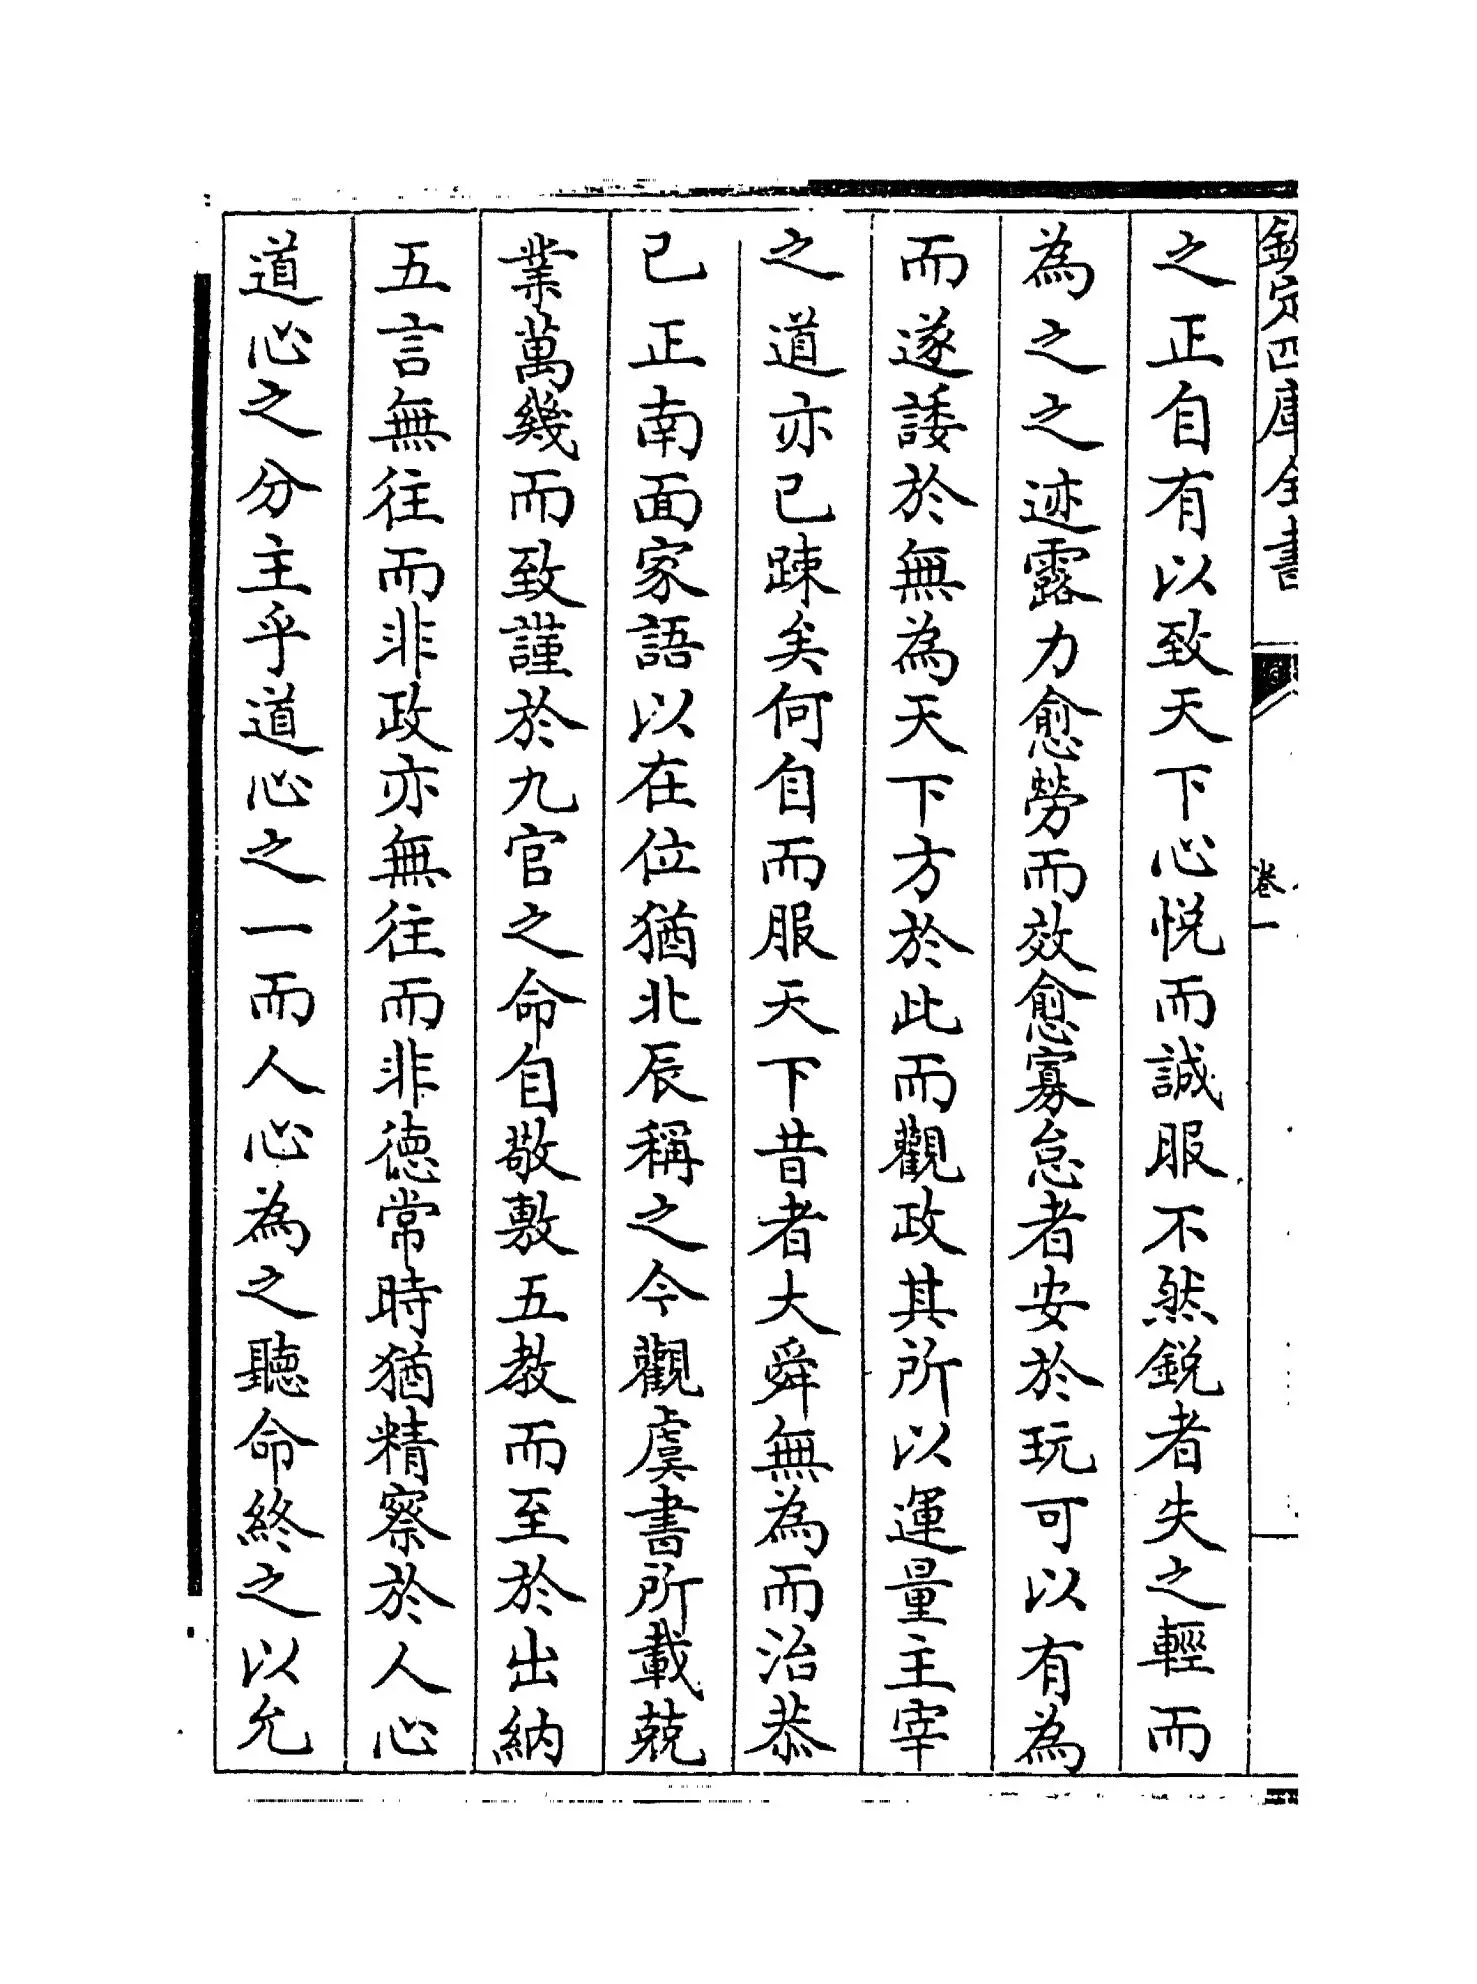 欽定四庫全書
卷一
之正自有以致天下心悅而誠服不然鋭者失之輕而
為之之迹露力愈勞而效愈寡怠者安於玩可以有為
而遂諉於無為天下方於此而觀政其所以運量主宰
之道亦已踈矣何自而服天下昔者大舜無為而治恭
已正南面家語以在位猶北辰稱之今觀虞書所載兢
業萬幾而致謹於九官之命自敬敷五教而至於出納
五言無往而非政亦無往而非徳常時猶精察於人心
道心之分主乎道心之一而人心為之聽命終之以允